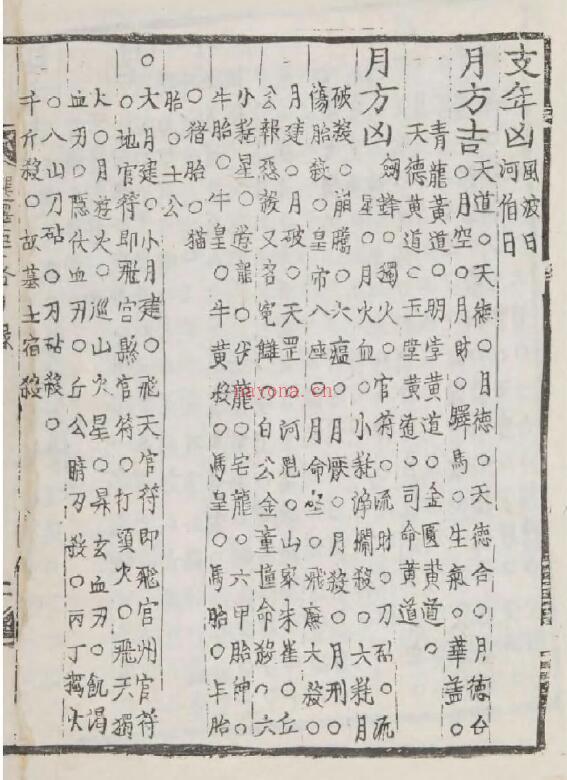 支年凶風波日
河伯日
月方吉天道○天德○月德○天德合○月德合
○月空○月財○驛馬○生氣○華蓋○
青龍黃道○明堂黃道○金匱黃道○
天德黃道○玉堂黃道○司命黃道
月方凶劍鋒○獨火○官符○流財○刀砧○流
星○月火血○小耗淨攔殺○六耗月
破殺○崩騰○六瘟○月厭○月殺○月刑○
傷胎殺○皇帀八座○月命座○飛廉大殺○
月建○月破○天罡○河魁○山家朱雀○丘
公報惡殺又名寃讎○白公金童撞命殺○六
小耗星○卷龍○步龍○宅龍○六甲胎神○
牛胎○牛皇○牛黃殺○馬皇○馬胎○羊胎
○猪胎○猫
胎○土公
○大月建○小月建○飛天官符即飛宮州官符
○地官符即飛宮縣官符○打頭火○飛天獨
火○月遊火○巡山火星○昇玄血刃○飢渴
血刃○隱伏血刃○丘公暗刃殺○丙丁獨火
○八山刀砧○刀砧殺○
千斤殺○故墓土宿殺
nayona.cn